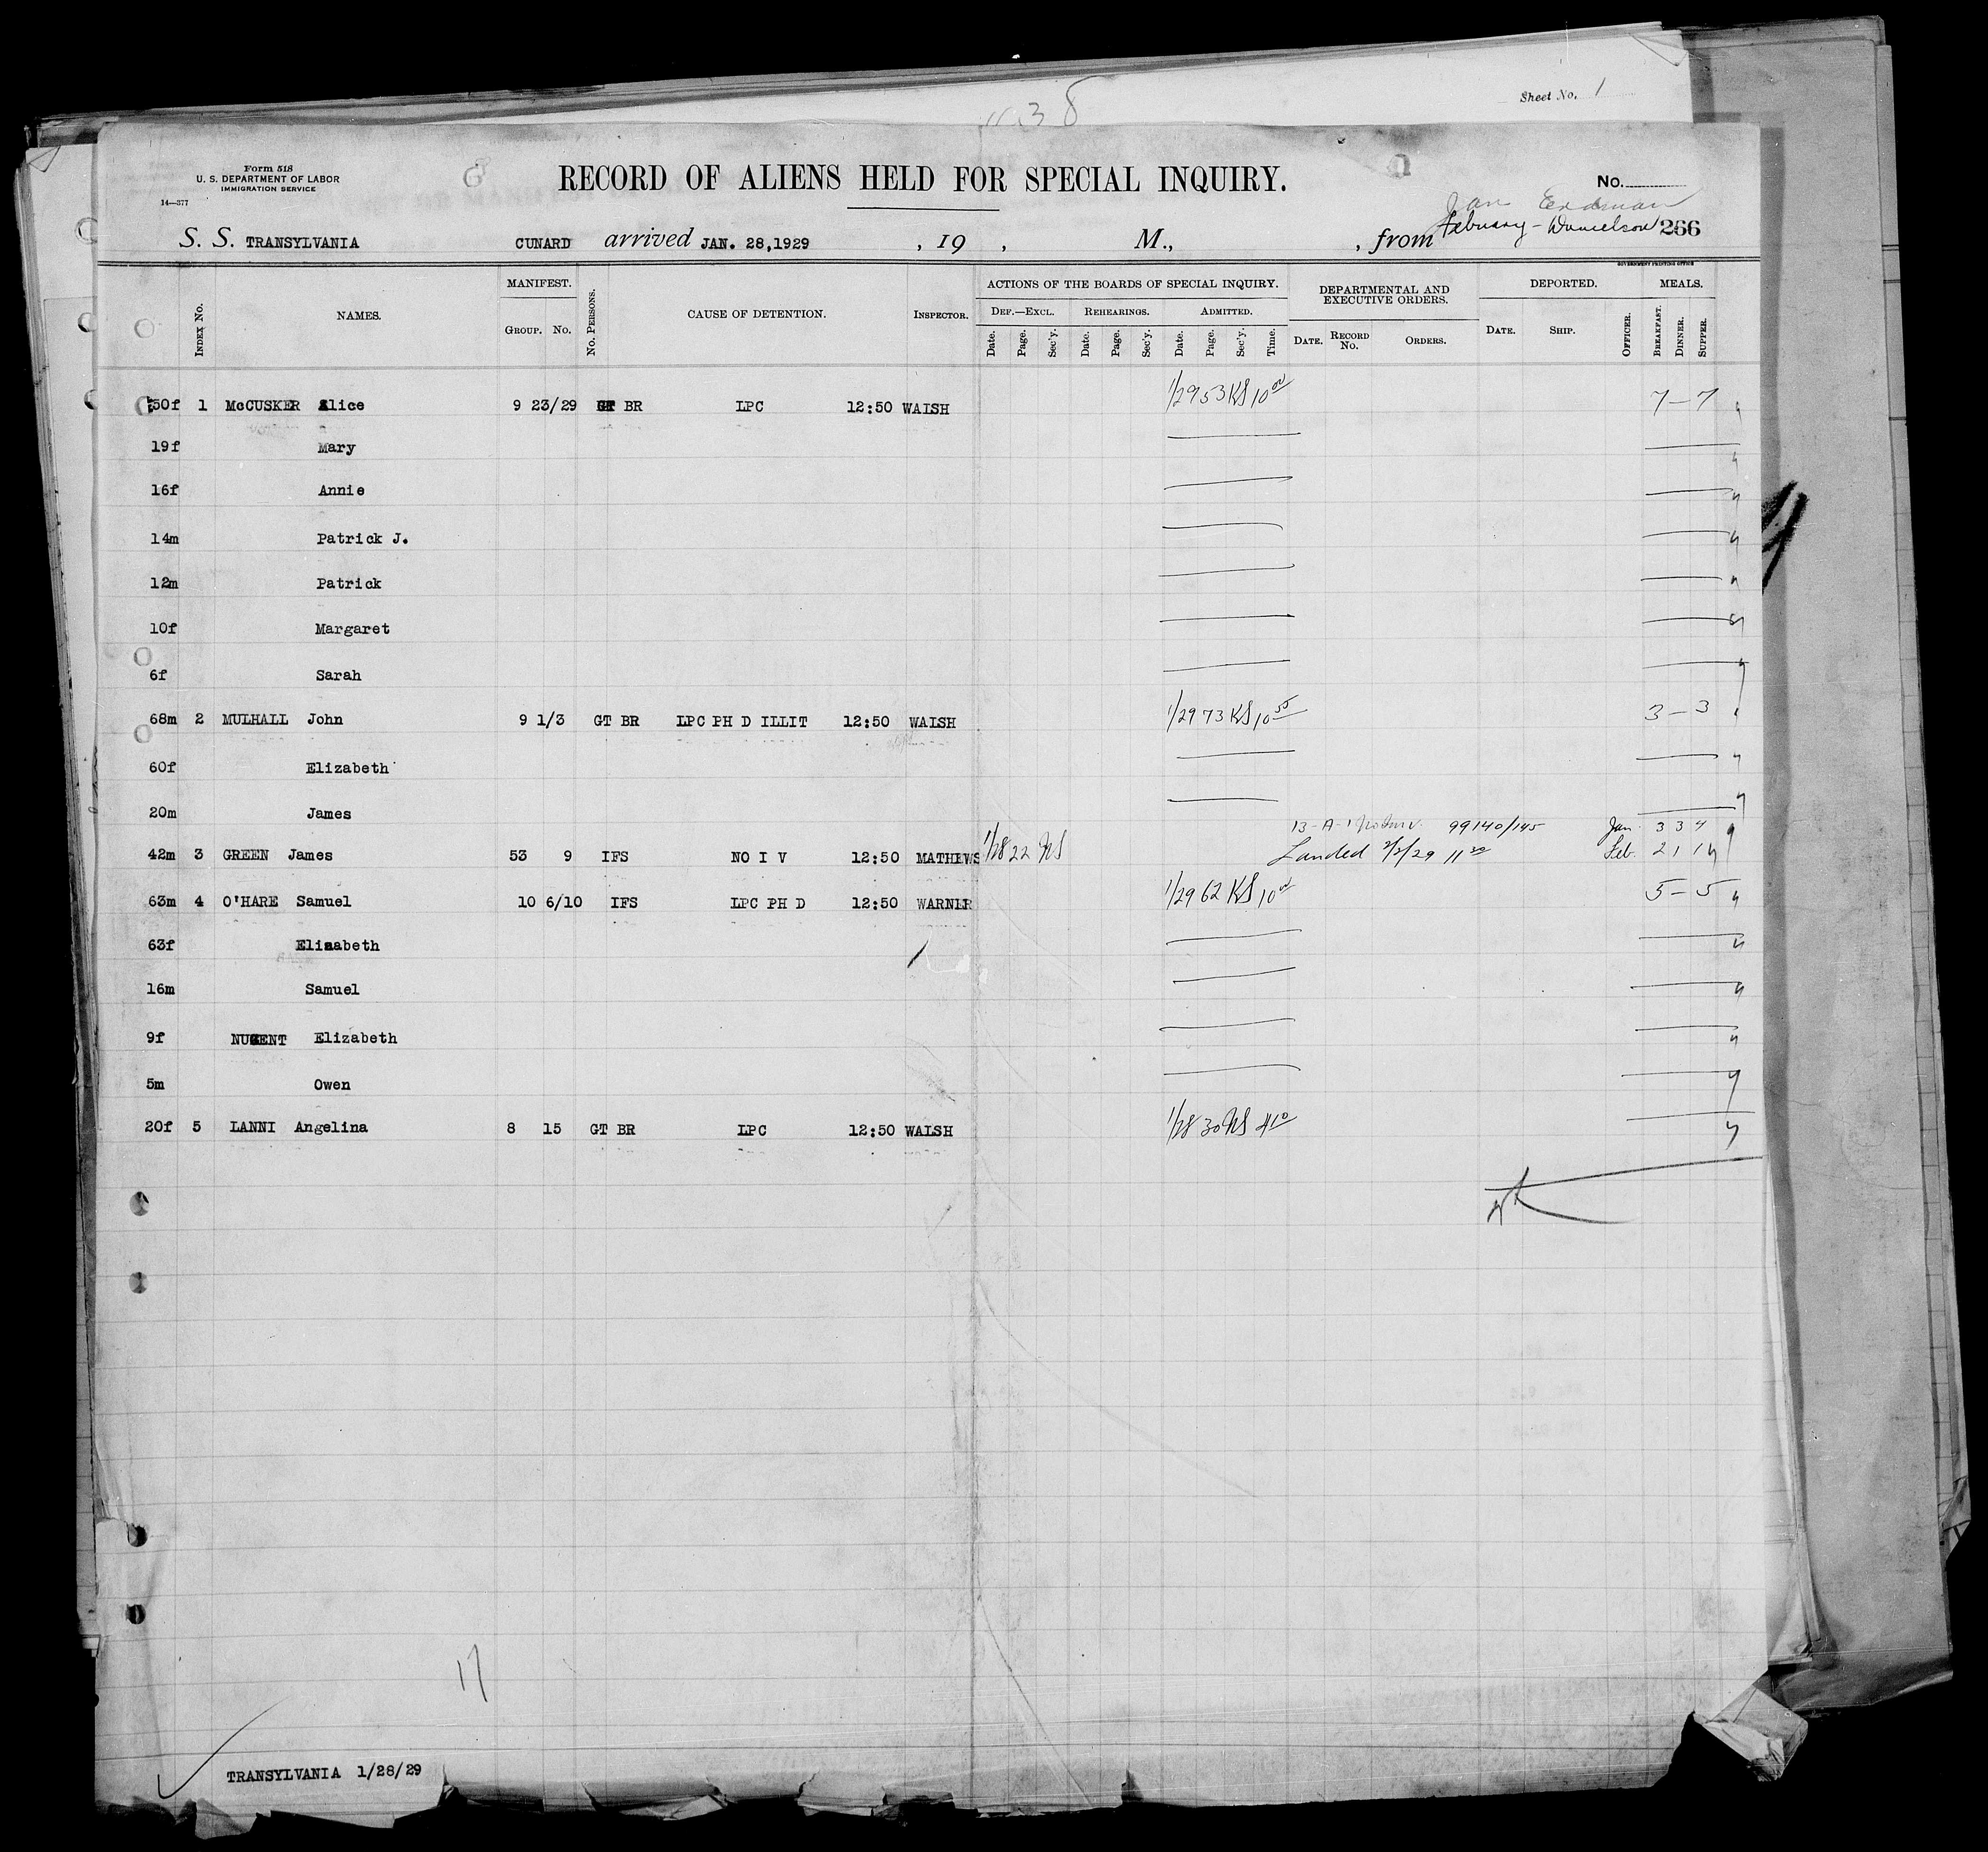 Sheet No. 1
Form 518
U. S. DEPARTMENT OF LABOR
IMMIGRATION SERVICE
14—377
RECORD OF ALIENS HELD FOR SPECIAL INQUIRY.
No.
Jan Erdman
February - Danielson 266
S. S. TRANSYLVANIA CUNARD arrived JAN. 28,1929 , 19 , M., , from
GOVERNMENT PRINTING OFFICE
Index No. NAMES. MANIFEST. Group. No. No. Persons. CAUSE OF DETENTION. Inspector. ACTIONS OF THE BOARDS OF SPECIAL INQUIRY. DEPARTMENTAL AND EXECUTIVE ORDERS. DEPORTED. MEALS.
Def.—Excl. Rehearings. Admitted.
Date. Page. Sec'y. Date. Page. Sec'y. Date. Page. Sec'y. Time. Date. Record No. Orders. Date. Ship. Officer. Breakfast. Dinner. Supper.
50f 1 McCUSKER Alice 9 23/29 GT BR LPC 12:50 WALSH 1/29 53 KS 10 00 7 — 7
19f Mary
16f Annie
14m Patrick J.
12m Patrick
10f Margaret
6f Sarah
68m 2 MULHALL John 9 1/3 GT BR LPC PH D ILLIT 12:50 WALSH 1/29 73 KS 10 55 3 — 3
60f Elizabeth
20m James
13-A-1 99140/145 Jan. 3 3 4
42m 3 GREEN James 53 9 IFS NO I V 12:50 MATHEWS 1/28 22 NS Landed 2/2/29 11 30 Feb. 2 1 1
63m 4 O'HARE Samuel 10 6/10 IFS LPC PH D 12:50 WARNER 1/29 62 KS 10 00 5 — 5
63f Elizabeth
16m Samuel
9f NUGENT Elizabeth
5m Owen
20f 5 LANNI Angelina 8 15 GT BR LPC 12:50 WALSH 1/28 30 NS 4 10
17
TRANSYLVANIA 1/28/29